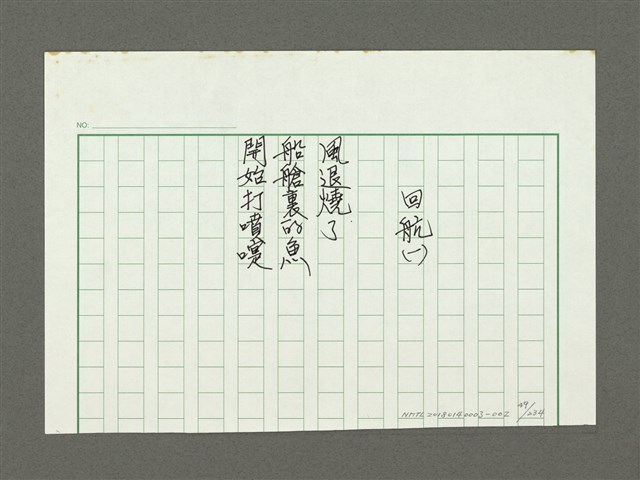 回航(一)
風退燒了
船艙裏的魚
開始打噴嚏
NO:
NMTL20180140003-002
49/234